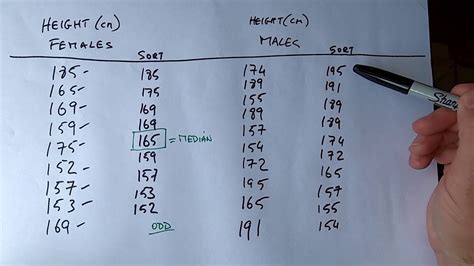 HEIGHT (cm) HEIGHT (cm)
FEMALES MALES
SORT SORT
185- 185 174 195
165- 175 189 191
169- 169 155 189
159- 169 189 189
175- 165 = MEDIAN 157 174
152- 159 154 172
157- 157 172 165
153- 153 195 157
169- 152 165 155
ODD 191 154
Sharpie